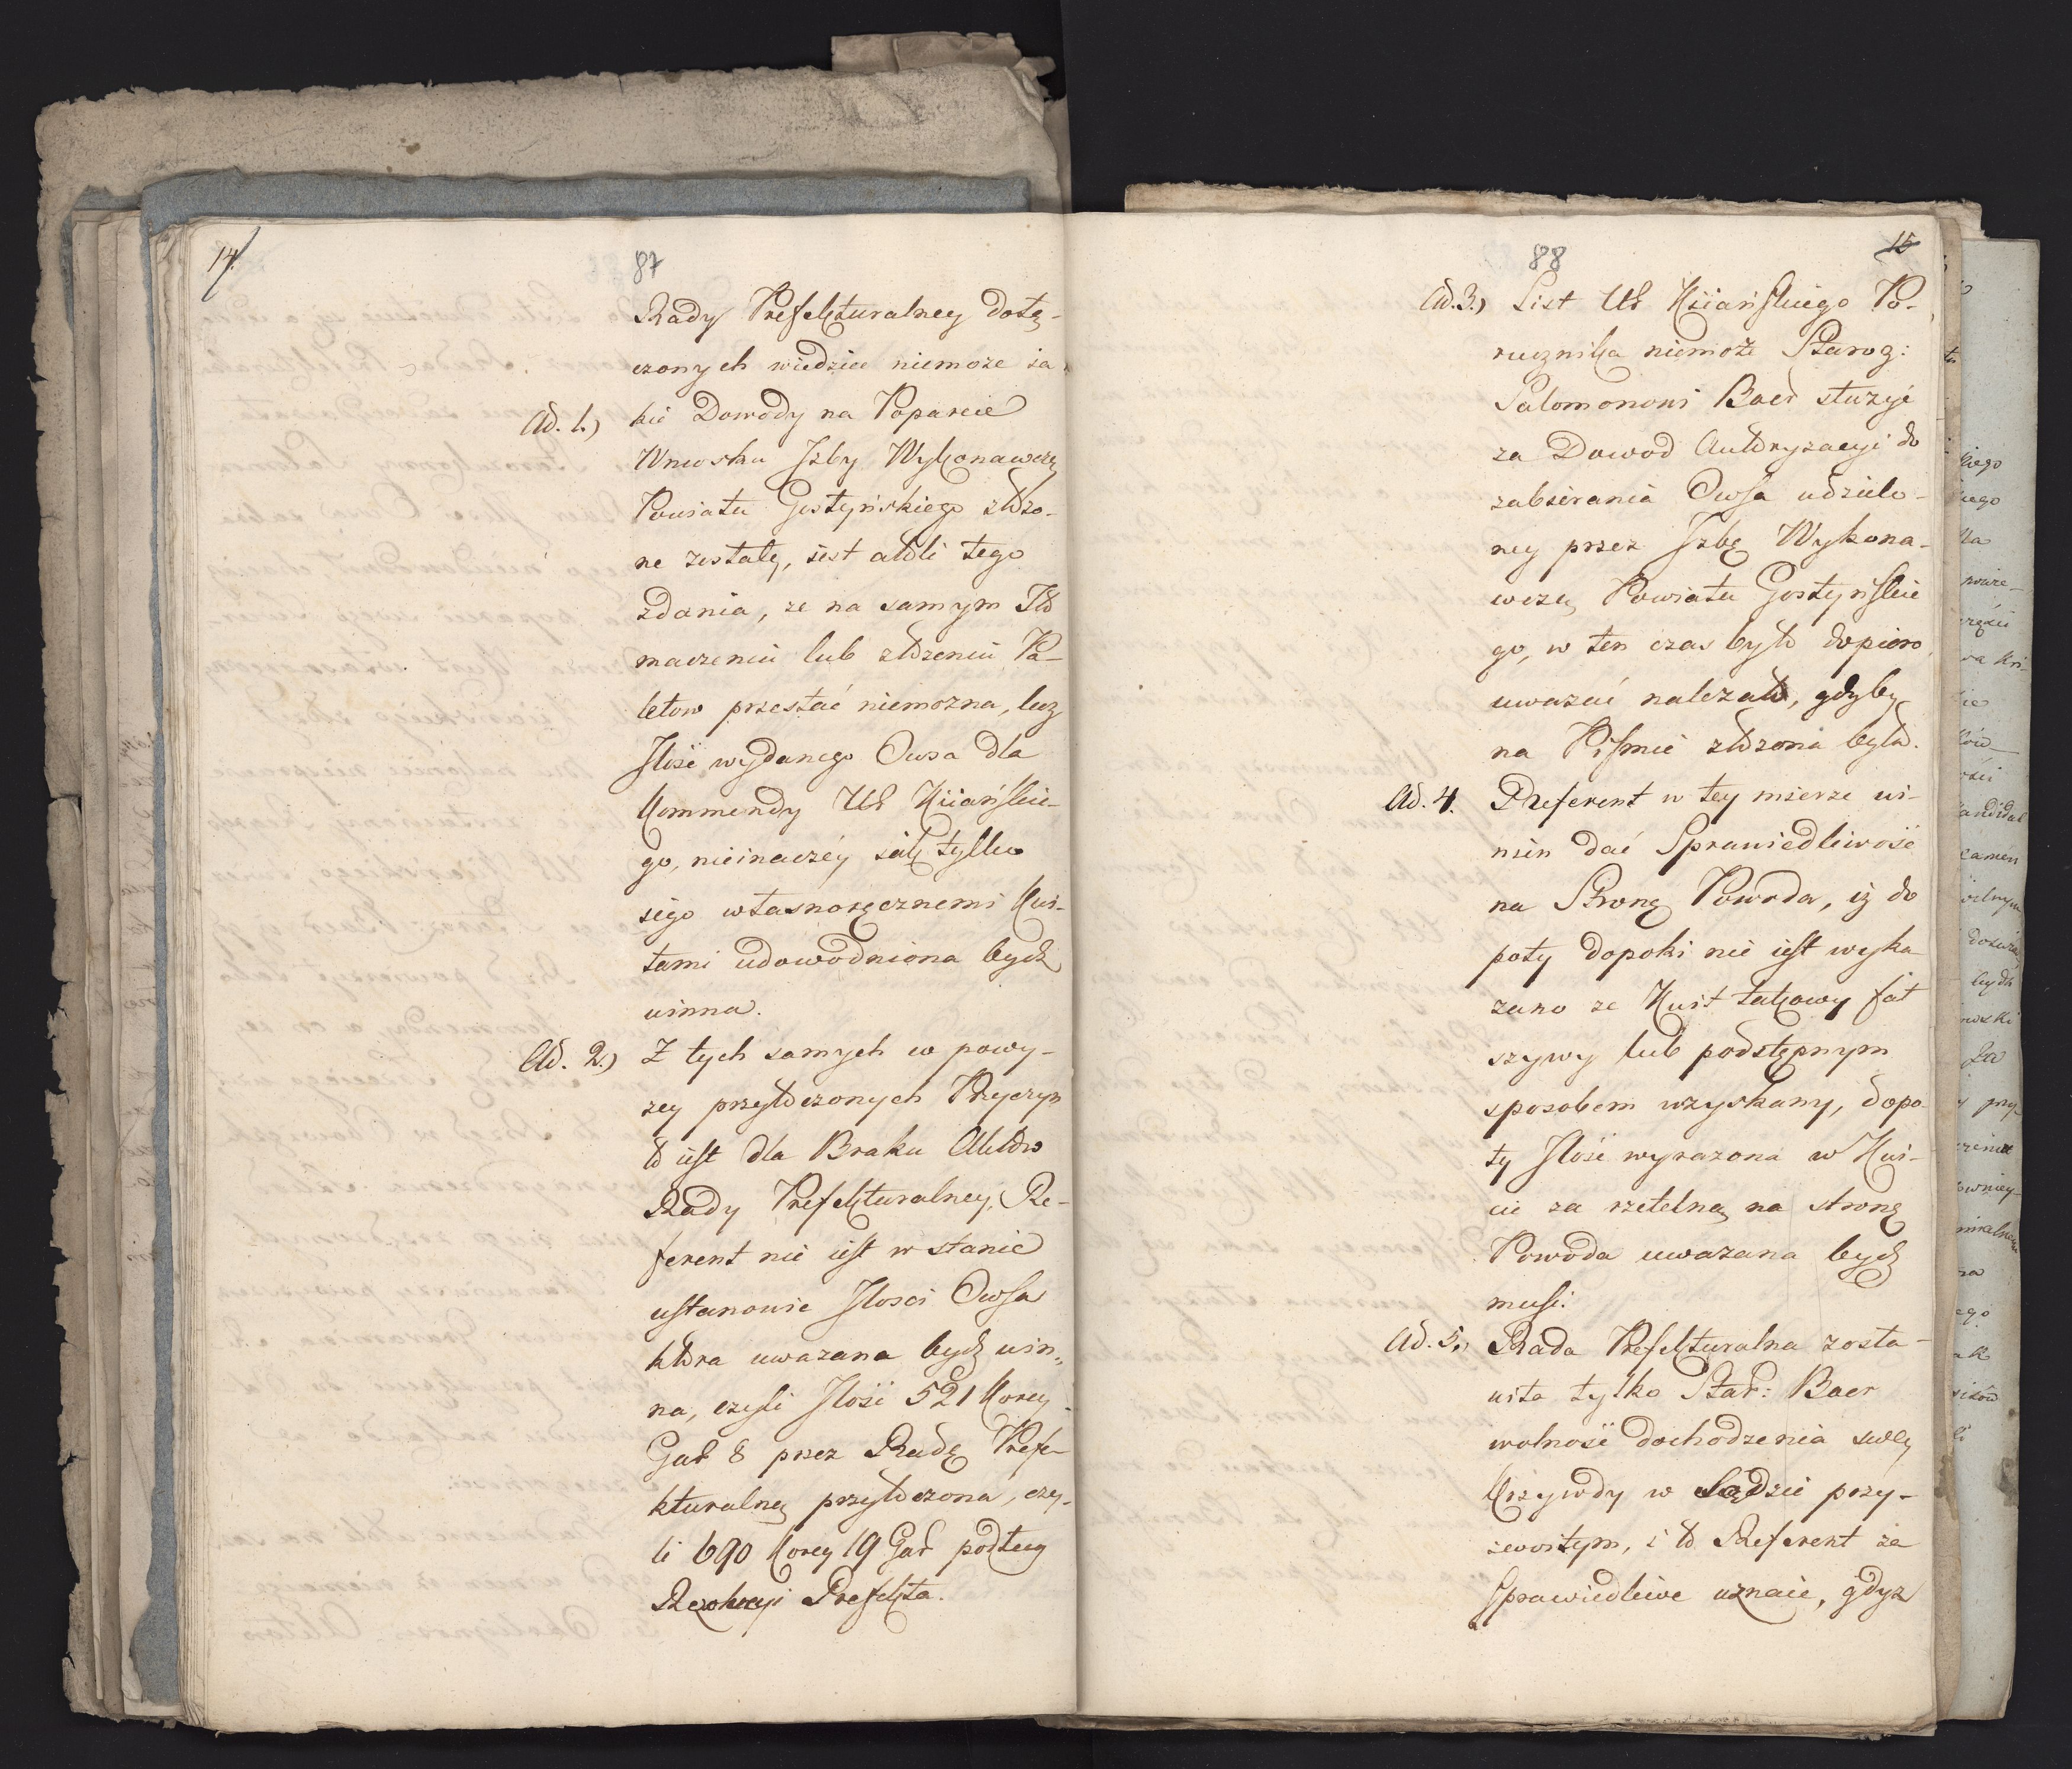 14.
87
Rady Prefekturalney dołą-
czonych wiedzieć niemoże ia-
Ad. 1.) kie Dowody na Poparcie
Wniosku Jzby Wykonawczey
Powiatu Gostyńskiego złożo-
ne zostały, iest atoli tego
zdania, ze na samym Tło
maczeniu lub złożeniu Pa-
letow przestać niemozna, lecz
Jlość wydanego Owsa dla
Kommendy Ur Kiiańskie-
go, nieinaczéy iak tylko
iego własnoręcznemi Kwi-
tami udowodniona bydź
winna.
Ad. 2.) Z tych samych co powy-
zey przytoczonych Przyczyn
to iest dla Braku Aktow
Rady Prefekturalney, Re-
ferent nie iest w stanie
ustanowić Jlosci Owsa
która uwazana bydź win„
na, czyli Jlość 521 Korcy
Gar 8 przez Radę Prefe-
kturalną przytoczona, czy-
li 690 Korcy 19 Gar podług
Rezolucyi Prefekta.
88
15
Ad. 3.) List Ur Kiiańskiego Po-
rucznika niemoże Staroz:
Salomonowi Baer służyć
za Dowod Autoryzacyi do
zabierania Owsa udzielo-
ney przez Jzbę Wykona-
wczą Powiatu Gostyńskie
go, w ten czas było dopiero
uwazać nalezało, gdyby
na Piśmie złożona była.
Ad. 4. Referent w tey mierze wi-
nien dać Sprawiedliwość
na Stronę Powoda, iz do
poty dopoki nie iest wyka
zano ze Kwit takowy fał
szywy lub podstępnym
sposobem wzyskany, dopo-
ty Jlość wyrazona w Kwi-
cie za rzetelną na stronę
Powoda uwazana bydź
musi.
Ad. 5.) Rada Prefekturalna zosta-
wiła tylko Star: Baer
wolność dochodzenia swey
Krzywdy w Sądzie przy-
zwoitym, i to Referent za
Sprawiedliwe uznaie, gdyz